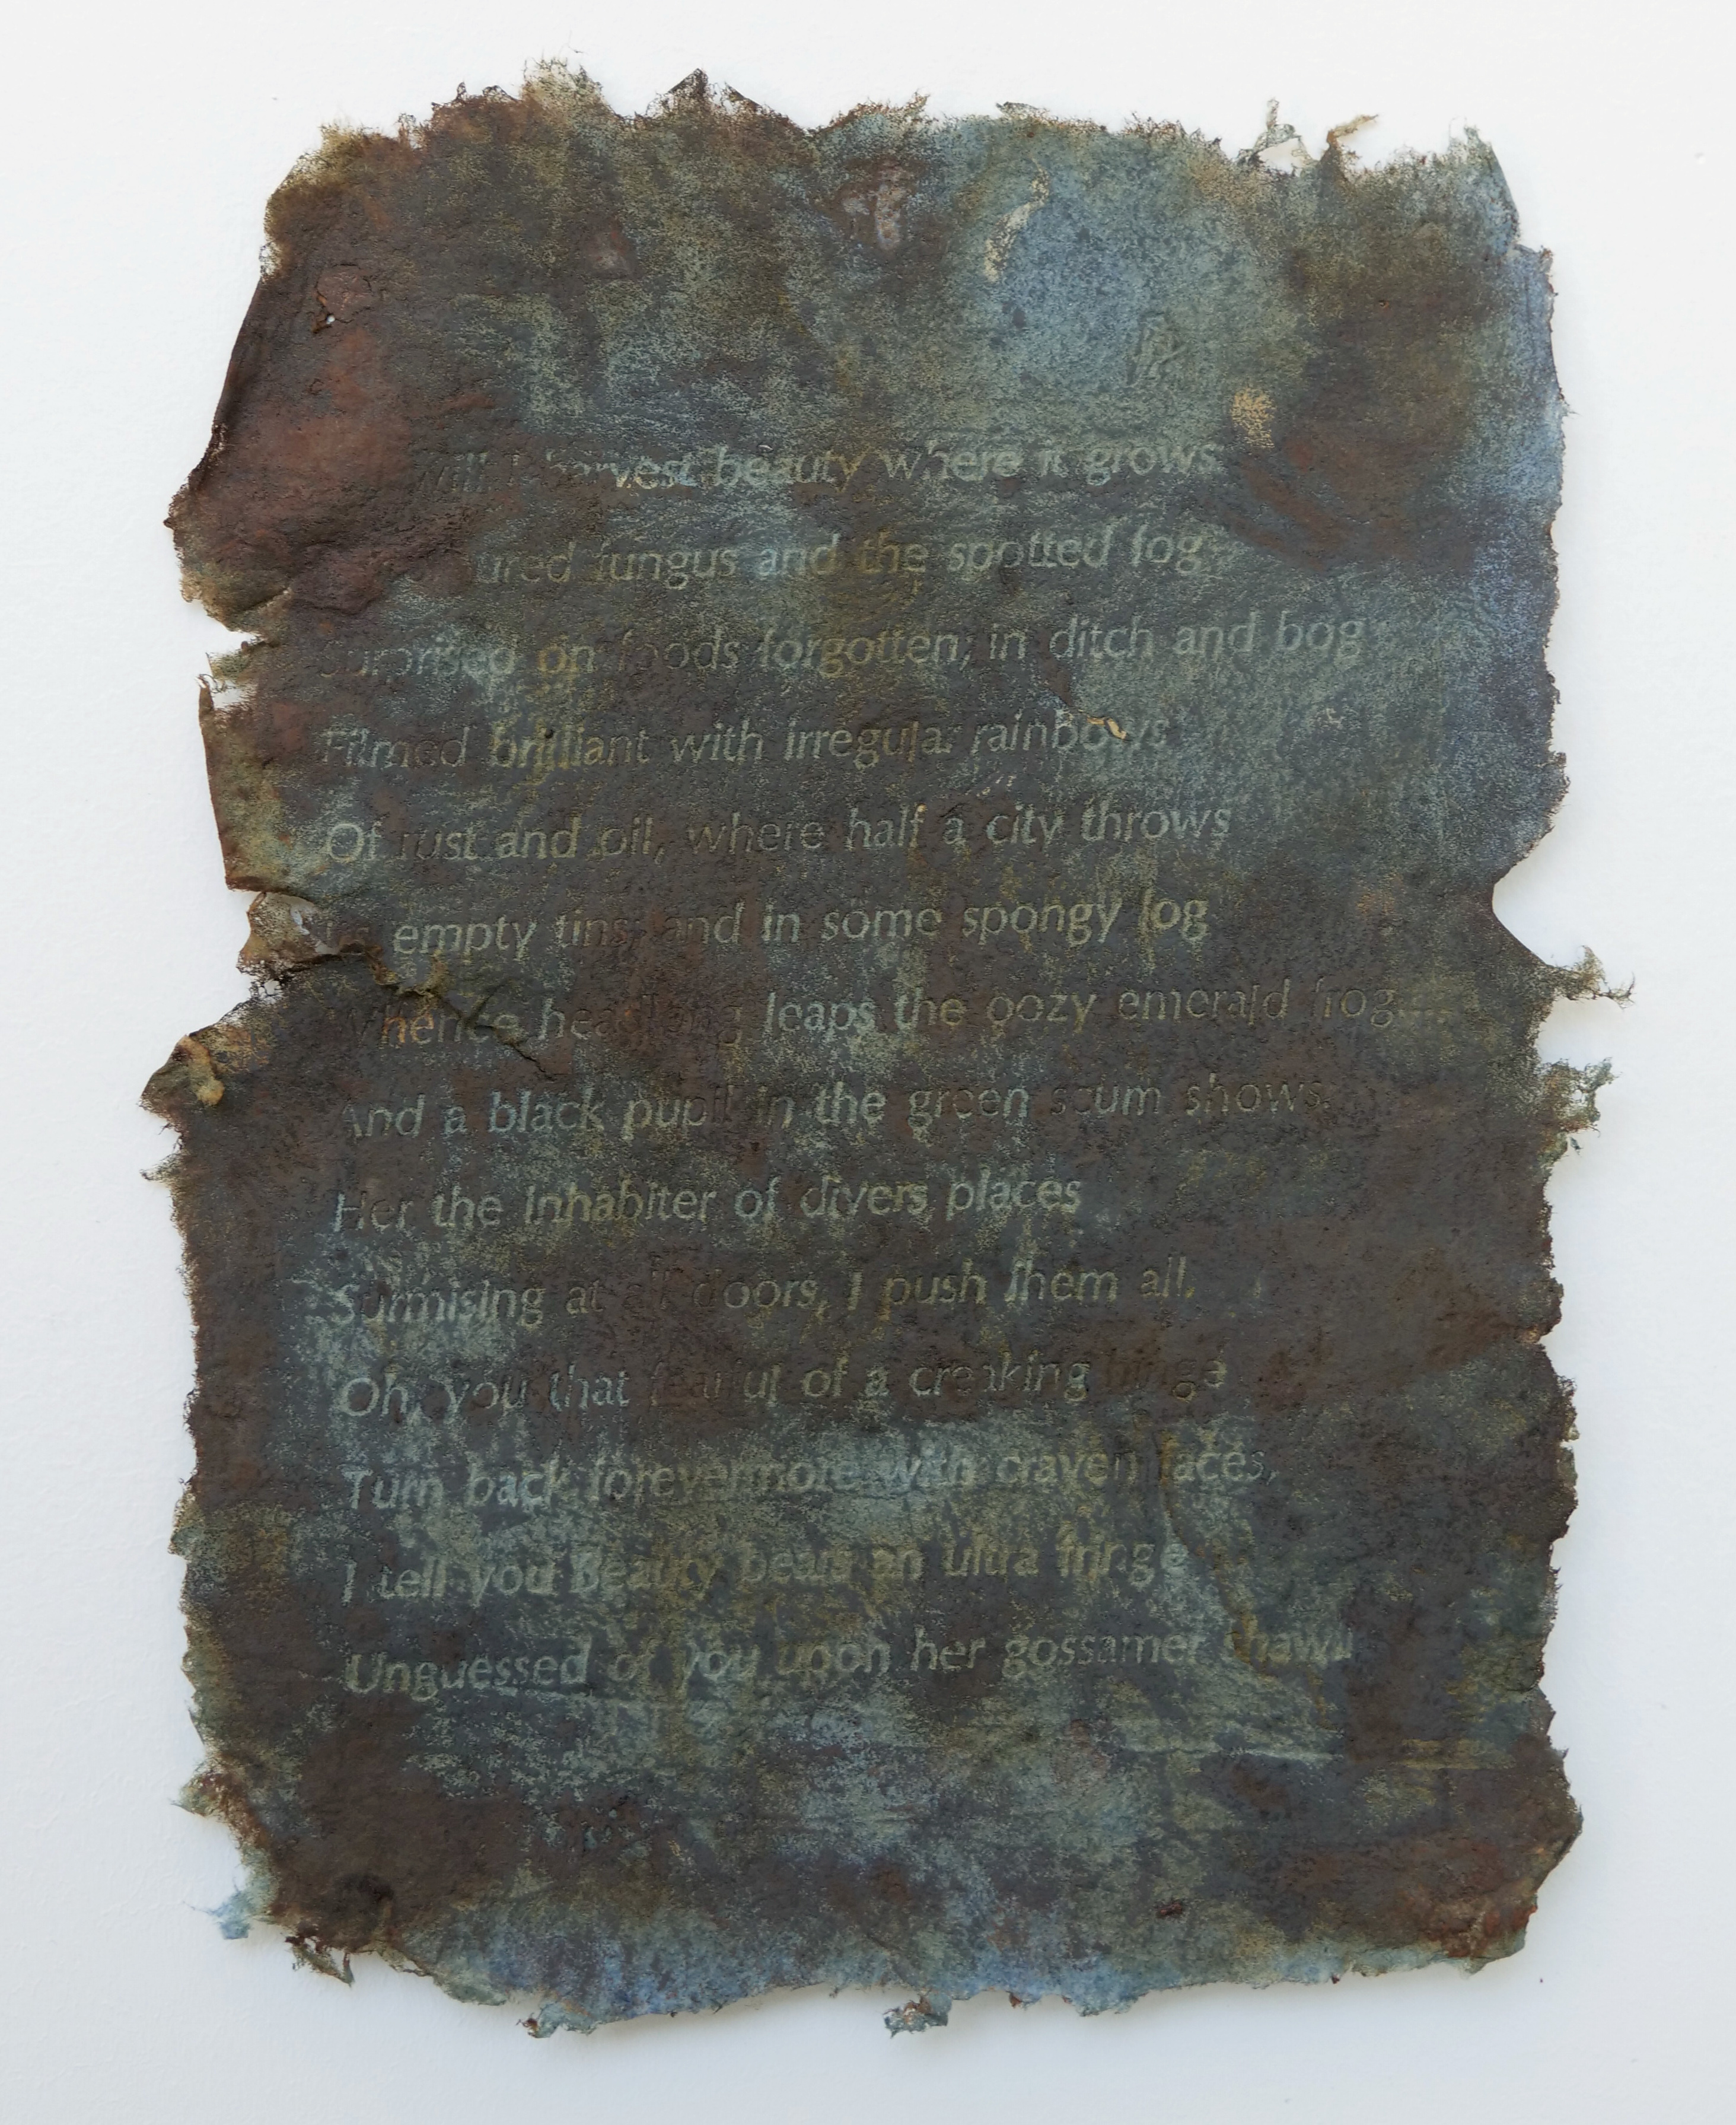 Will I harvest beauty where it grows
fungus and the spotted fog
Surprised on foods forgotten; in ditch and bog
Filmed brilliant with irregular rainbows
Of rust and oil, where half a city throws
Its empty tins; and in some spongy log
Whence headlong leaps the oozy emerald frog....
And a black pupil in the green scum shows.
Her the inhabiter of divers places
Surmising at all doors, I push them all.
Oh, you that fearful of a creaking hinge
Turn back forevermore with craven faces,
I tell you Beauty bears an ultra fringe
Unguessed of you upon her gossamer shawl